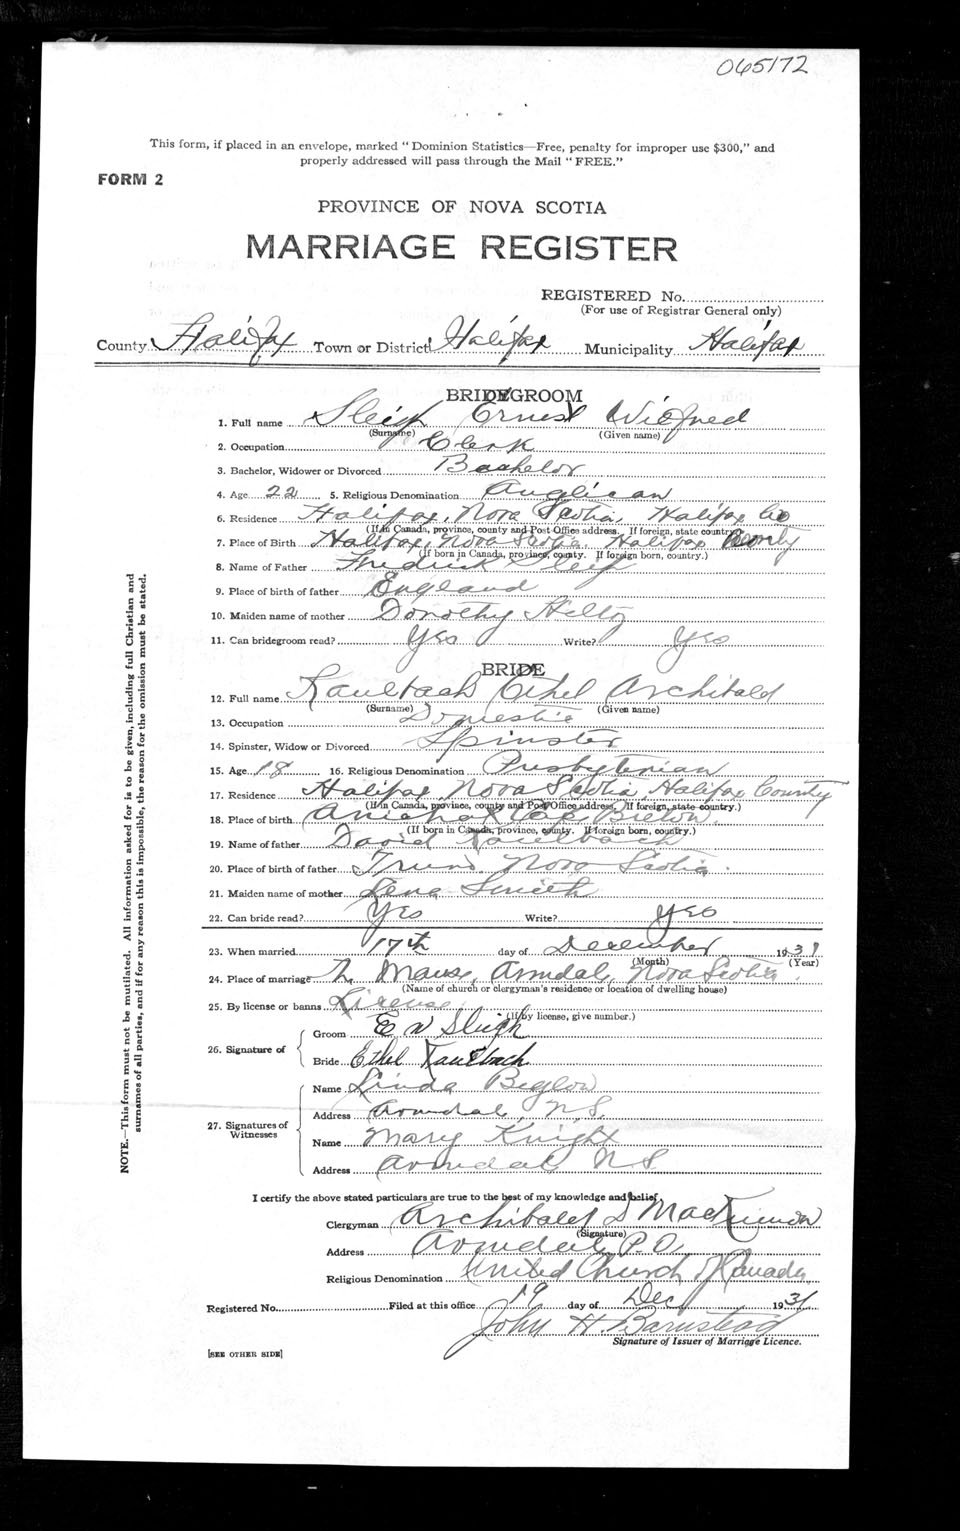 065172
This form, if placed in an envelope, marked " Dominion Statistics—Free, penalty for improper use $300," and
properly addressed will pass through the Mail " FREE."
FORM 2
PROVINCE OF NOVA SCOTIA
MARRIAGE REGISTER
REGISTERED No.
(For use of Registrar General only)
County Halifax Town or District Halifax Municipality Halifax
BRIDEGROOM
1. Full name Ernest Wilfred
(Surname) (Given name)
2. Occupation Clerk
3. Bachelor, Widower or Divorced Bachelor
4. Age 22 5. Religious Denomination Anglican
6. Residence Halifax, Nova Scotia, Halifax Co
(If in Canada, province, county and Post Office address. If foreign, state country.)
7. Place of Birth Halifax, Nova Scotia, Halifax County
(If born in Canada, province, county. If foreign born, country.)
8. Name of Father Fredrick
9. Place of birth of father England
10. Maiden name of mother Dorothy Hiltz
11. Can bridegroom read? Yes Write? Yes
BRIDE
12. Full name Kaulbach Ethel Archibald
(Surname) (Given name)
13. Occupation Domestic
14. Spinster, Widow or Divorced Spinster
15. Age 18 16. Religious Denomination Presbyterian
17. Residence Halifax Nova Scotia Halifax County
(If in Canada, province, county and Post Office address. If foreign, state country.)
18. Place of birth Cape Breton
(If born in Canada, province, county. If foreign born, country.)
19. Name of father David Kaulbach
20. Place of birth of father Truro Nova Scotia
21. Maiden name of mother Lena Smith
22. Can bride read? Yes Write? Yes
23. When married 17th day of December 1931
(Month) (Year)
24. Place of marriage The Manse, Armdale, Nova Scotia
(Name of church or clergyman's residence or location of dwelling house)
25. By license or banns License
(If by license, give number.)
26. Signature of
Groom E W Sleigh
Bride Ethel Kaulbach
27. Signatures of Witnesses
Name Linda Biglow
Address Armdale, N.S.
Name Mary Knight
Address Armdale N S
I certify the above stated particulars are true to the best of my knowledge and belief.
Clergyman Archibald D MacKinnon
(Signature)
Address Armdale P.O.
Religious Denomination United Church of Canada
Registered No. Filed at this office 19 day of Dec 1931
John H Barnstead
Signature of Issuer of Marriage Licence.
[SEE OTHER SIDE]
NOTE.—This form must not be mutilated. All information asked for is to be given, including full Christian and
surnames of all parties, and if for any reason this is impossible, the reason for the omission must be stated.